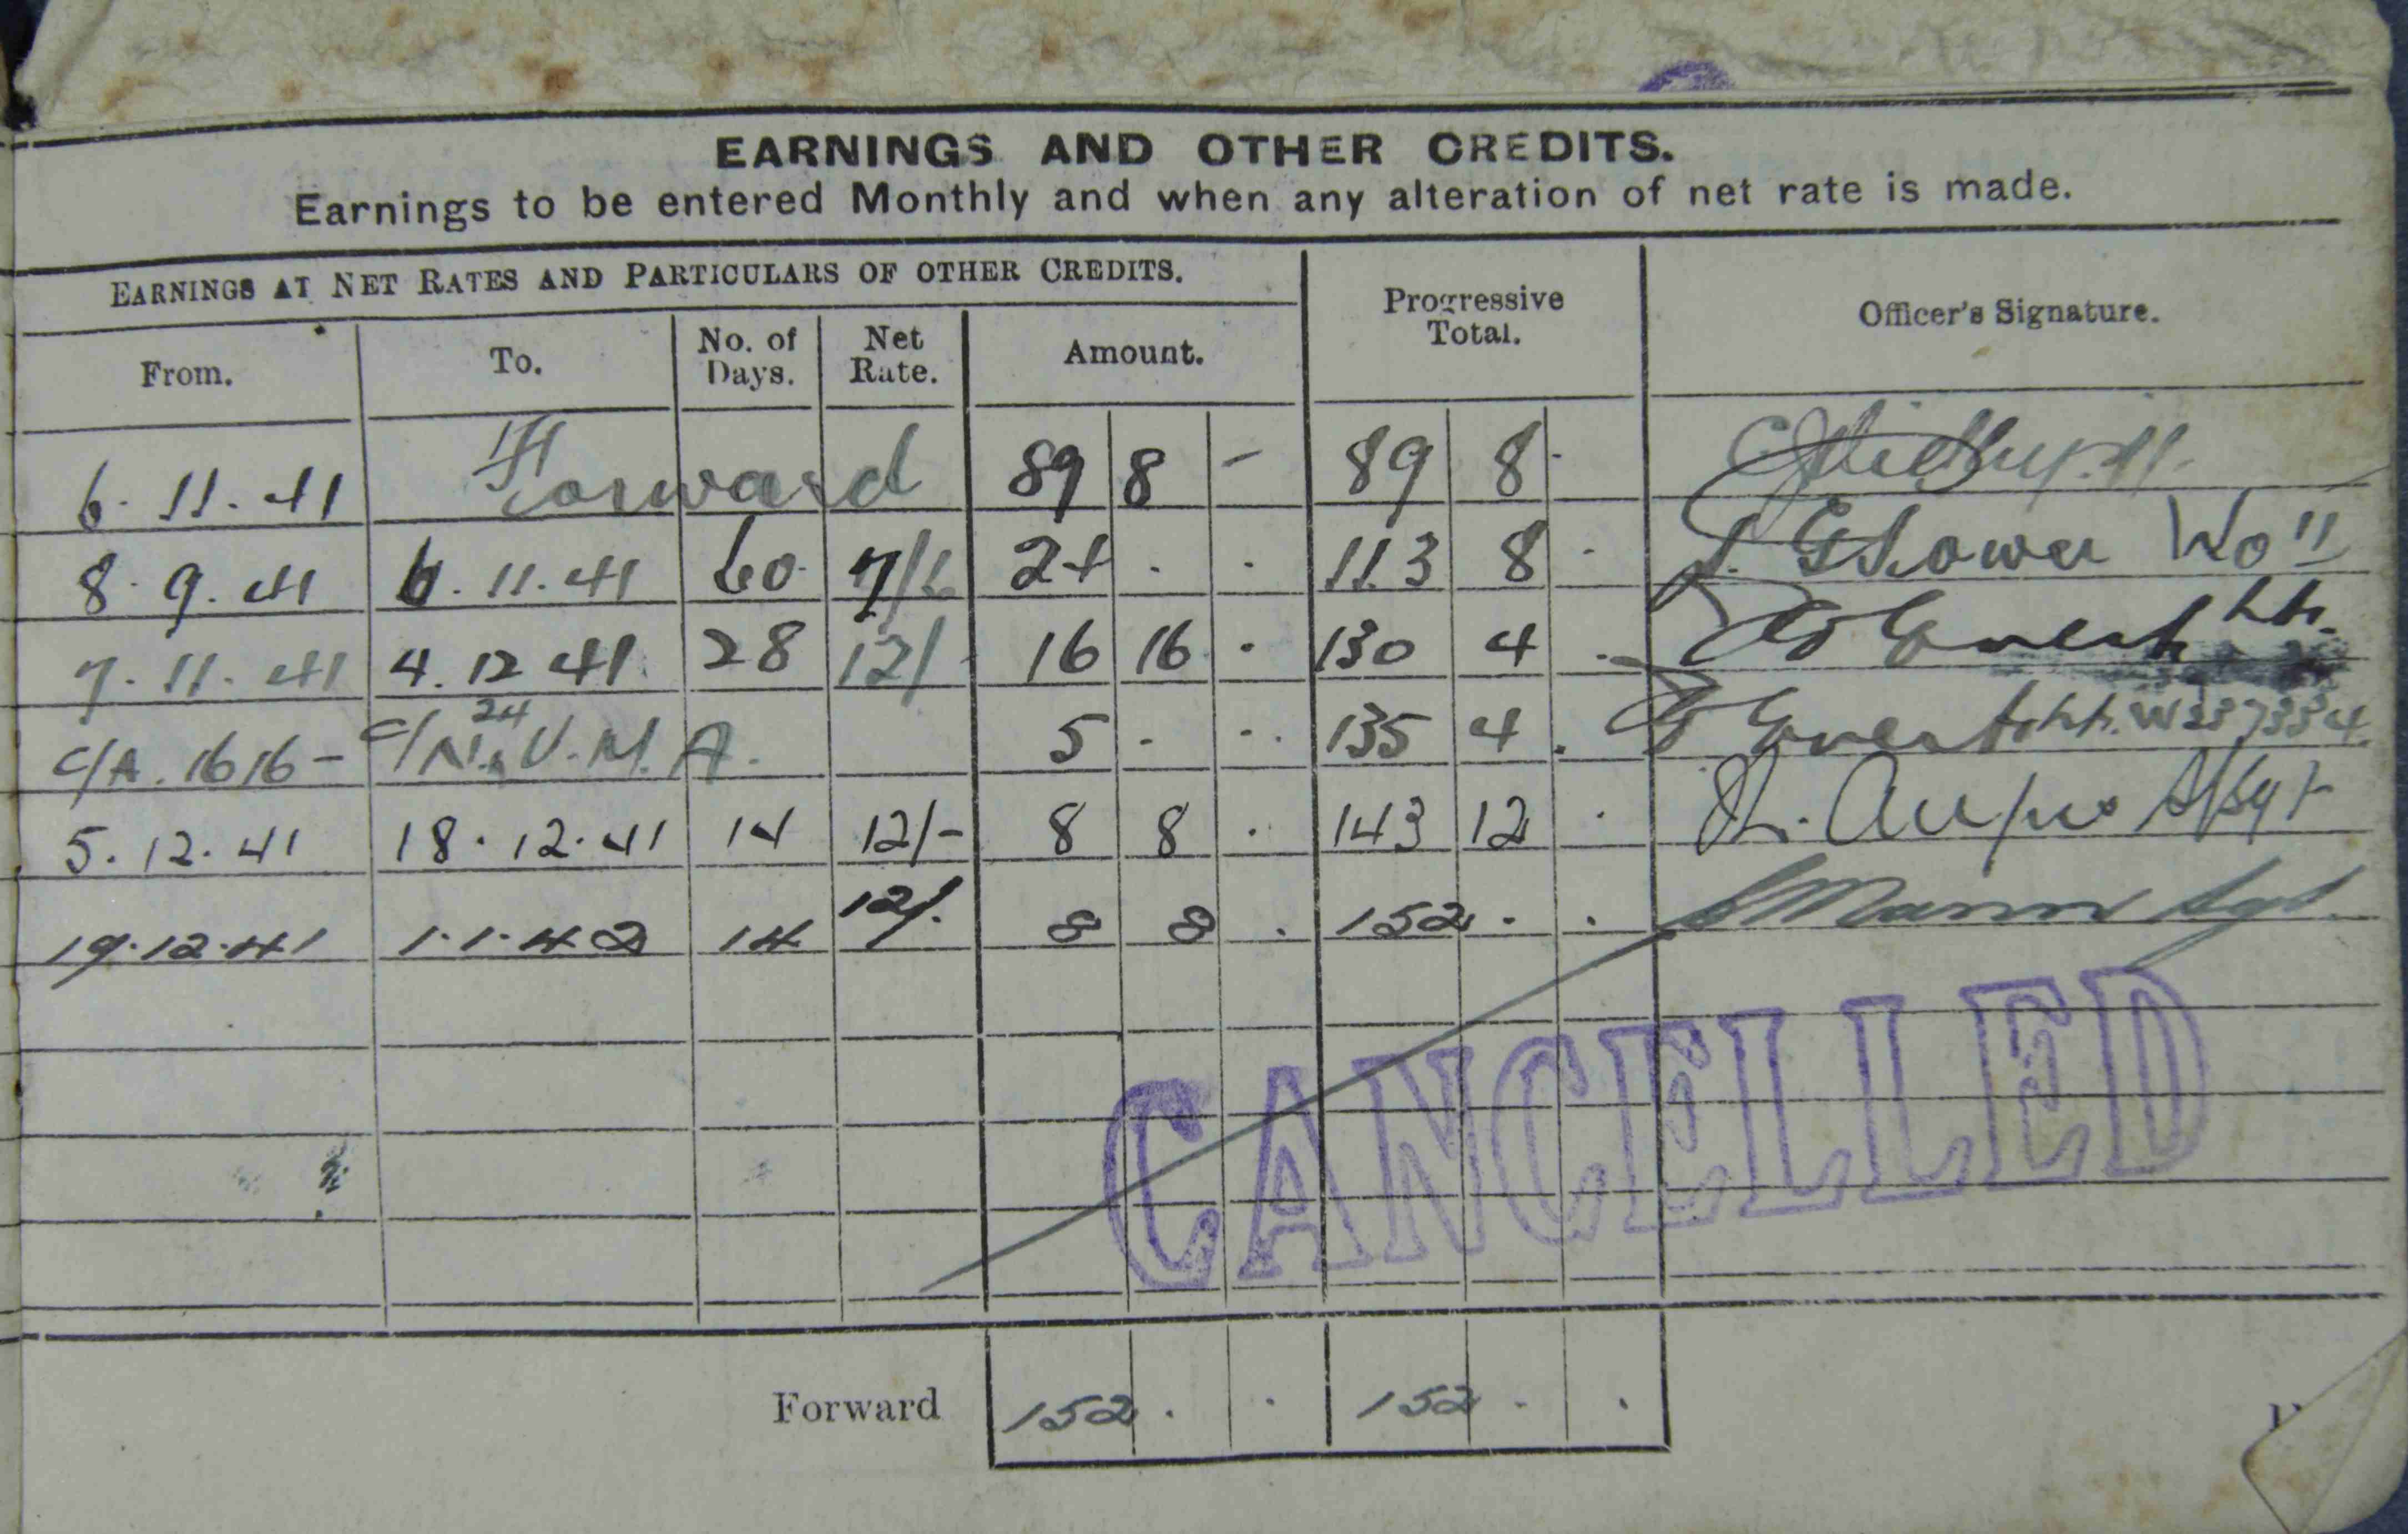 EARNINGS AND OTHER CREDITS.
Earnings to be entered Monthly and when any alteration of net rate is made.
EARNINGS AT NET RATES AND PARTICULARS OF OTHER CREDITS.
Progressive Total.
Officer's Signature.
From. To. No. of Days. Net Rate. Amount.
6.11.41 Forward 89 8 - 89 8 -
8.9.41 6.11.41 60 24 . . 113 8 .
7.11.41 4.12 41. 28 12/- 16 16 . 130 4 .
C/A. 1616 - 5 . . 135 4 .
5.12.41 18.12.41 14 12/- 8 8 . 143 12 .
19.12.41 1.1.42 14 12/. 8 8 . 152 . . Mann Sgt.
CANCELLED
Forward 152 . . 152 . .